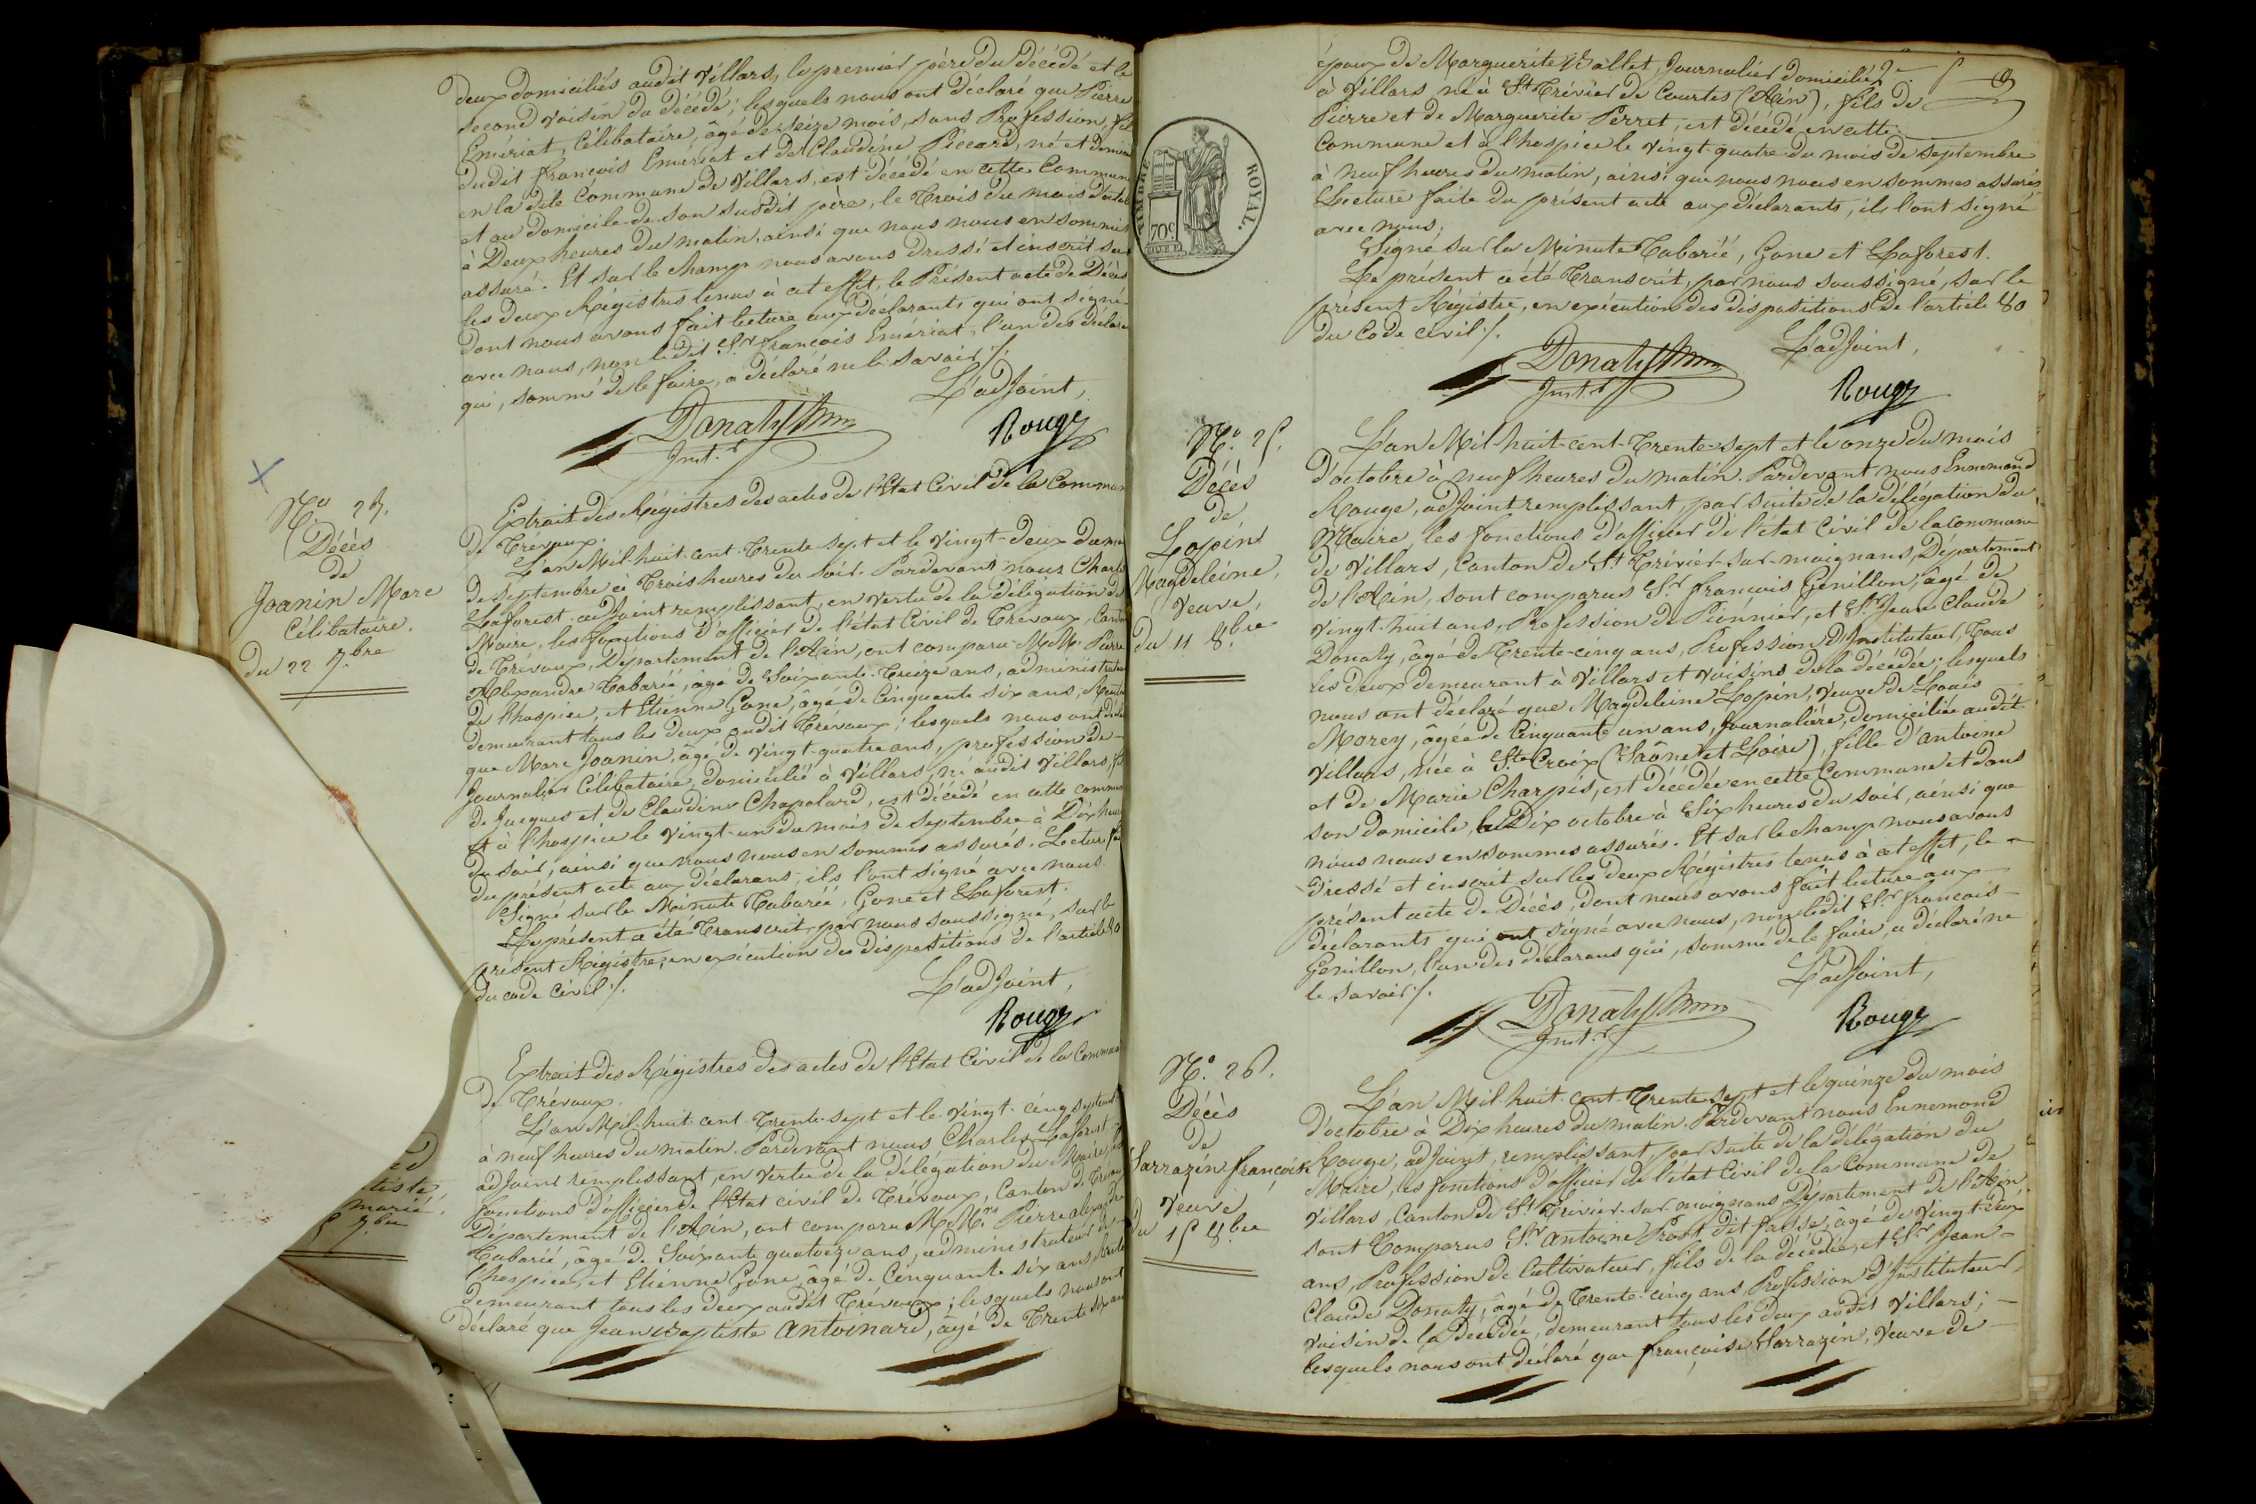 deux domiciliés audit Villars, le premier père du décédé et le
second voisin du décédé; lesquels nous ont déclaré que Pierre
Emériat, Célibataire, âgé de seize mois, sans Profession, fils
dudit françois Emériat et de Claudine Piccard, né et
en la dite Commune de Villars, est décédé en cette Commune
et au domicile de son susdit père, le Trois du mois
à Deux heures du matin, ainsi que nous nous en sommes
assuré. Et sur le champ nous avons dressé et inscrit sur
les deux Régistres tenus à cet effet, le Présent acte de Décès
dont nous avons fait lecture aux déclarants qui ont signé
avec nous, non ledit Sr. françois Emériat, l'un des
qui, sommé de le faire, a déclaré ne le savoir ./.
L'adjoint,
Donaty
Inst.r
Rouge
N.o 23.
Décès
de
Joanin Marc
Célibataire.
du 22 7.bre
Extrait des Régistres des actes de l'Etat Civil de la Commune
de Trévoux.
L'an Mil huit-cent-Trente-Sept et le Vingt-deux du mois
de septembre à Trois heures du soir. Pardevant nous Charles
Laforest adjoint remplissant, en vertu de la délégation du
Maire, les fonctions d'officier de l'état Civil de Trévoux, Canton
de Trévoux, Département de l'Ain, ont comparu M.M. Pierre
Alexandre Tabarié, âgé de Soixante-Treize ans, administrateur
de l'hospice, et Etienne Gone, âgé de Cinquante six ans,
demeurant tous les deux audit Trévoux; lesquels nous ont
que Marc Joanin, âgé de Vingt-quatre ans, profession de
Journalier Célibataire, domicilié à Villars, né audit Villars, fils
de Jacques et de Claudine Chapolard, est décédé en cette commune
et à l'hospice le vingt-un du mois de septembre à Dix heures
du soir, ainsi que nous nous en sommes assurés. Lecture
du présent acte aux déclarans, ils l'ont signé avec nous.
Signé sur la Minute Tabarié, Gone et Laforest.
Le présent a été Transcrit, par nous soussigné, sur le
présent Registre, en exécution des dispositions de l'article 80
du code Civil ./.
L'adjoint,
Rouge
marié.
7.bre
Extrait des Régistres des actes de l'Etat Civil de la Commune
de Trévoux.
L'an Mil-huit-cent-Trente-sept et le Vingt-cinq septembre
à neuf heures du matin. Pardevant nous Charles Laforest
adjoint remplissant, en vertu de la délégation du Maire, les
fonctions d'officier de l'Etat civil de Trévoux, Canton de Trévoux
Département de l'Ain, ont comparu M.M.rs Pierre alexandre
Tabarié, âgé de Soixante quatorze ans, administrateur de
l'hospice, et Etienne Gone, âgé de Cinquante six ans,
demeurant tous les deux audit Trévoux; lesquels nous ont
déclaré que Jean Baptiste Antoinard, âgé de Trente six ans
époux de Marguerite Gallet, Journalier domicilié
à Villars, né à St. Trivier de Courtes (Ain), fils de
Pierre et de Marguerite Perret, est décédé en cette
Commune et à l'hospice le vingt-quatre du mois de septembre
à neuf heures du matin, ainsi que nous nous en sommes assurés.
Lecture faite du présent acte aux déclarants, ils l'ont signé
avec nous,
Signé sur la Minute Tabarié, Gone et Laforest.
Le présent a été Transcrit, par nous soussigné, sur le
présent Régistre, en exécution des dispositions de l'article 80
du Code civil ./.
L'adjoint,
Donaty
Inst.r
Rouge
TIMBRE ROYAL.
70c.
N.o 25.
Décès
de
Lopin
Magdeleine,
Veuve,
du 11 8.bre
L'an Mil-huit-cent-Trente-sept et le onze du mois
d'octobre à neuf heures du matin. Pardevant nous Ennemond
Rouge, adjoint remplissant, par suite de la délégation du
Maire, les fonctions d'officier de l'état Civil de la commune
de Villars, Canton de St. Trivier-sur-moignans, Département
de l'Ain, sont comparus Sr. françois Genillon, âgé de
Vingt-huit ans, Profession de Pionnier, et Sr. Jean Claude
Donaty, âgé de Trente-cinq ans, Profession d'Instituteur, Tous
les deux demeurant à Villars et voisins de la décédée; lesquels
nous ont déclaré que Magdeleine Lopin, Veuve de Louis
Morey, âgée de Cinquante un ans, Journalière, domiciliée audit
Villars, née à Ste. Croix (Saône et Loire), fille d'antoine
et de Marie Charpis, est décédée en cette Commune et dans
son domicile, le Dix octobre à Six heures du soir, ainsi que
nous nous en sommes assurés. Et sur le champ nous avons
dressé et inscrit sur les deux Régistres tenus à cet effet, le
présent acte de Décès, dont nous avons fait lecture aux
déclarants qui ont signé avec nous, non ledit Sr. françois
Genillon, l'un des déclarans qui, sommé de le faire, a déclaré ne
le savoir ./.
L'adjoint,
Donaty
Inst.r
Rouge
N.o 26.
Décès
de
Sarrazin françoise
Veuve
du 15 8.bre
L'an Mil-huit-cent-Trente-sept et le quinze du mois
d'octobre à Dix heures du matin. Pardevant nous Ennemond
Rouge, adjoint, remplissant, par suite de la délégation du
Maire, les fonctions d'officier de l'état Civil de la Commune de
Villars, Canton de St. Trivier-sur-moignans, Département de l'Ain,
sont Comparus Sr. antoine Prost, dit age de Vingt-deux
ans, Profession de Cultivateur, fils de la décédée, et Sr. Jean-
Claude Donaty, âgé de Trente-cinq ans, Profession d'Instituteur,
voisin de la Décédée, demeurant tous les deux audit Villars;
lesquels nous ont déclaré que françoise Sarrazin, Veuve de